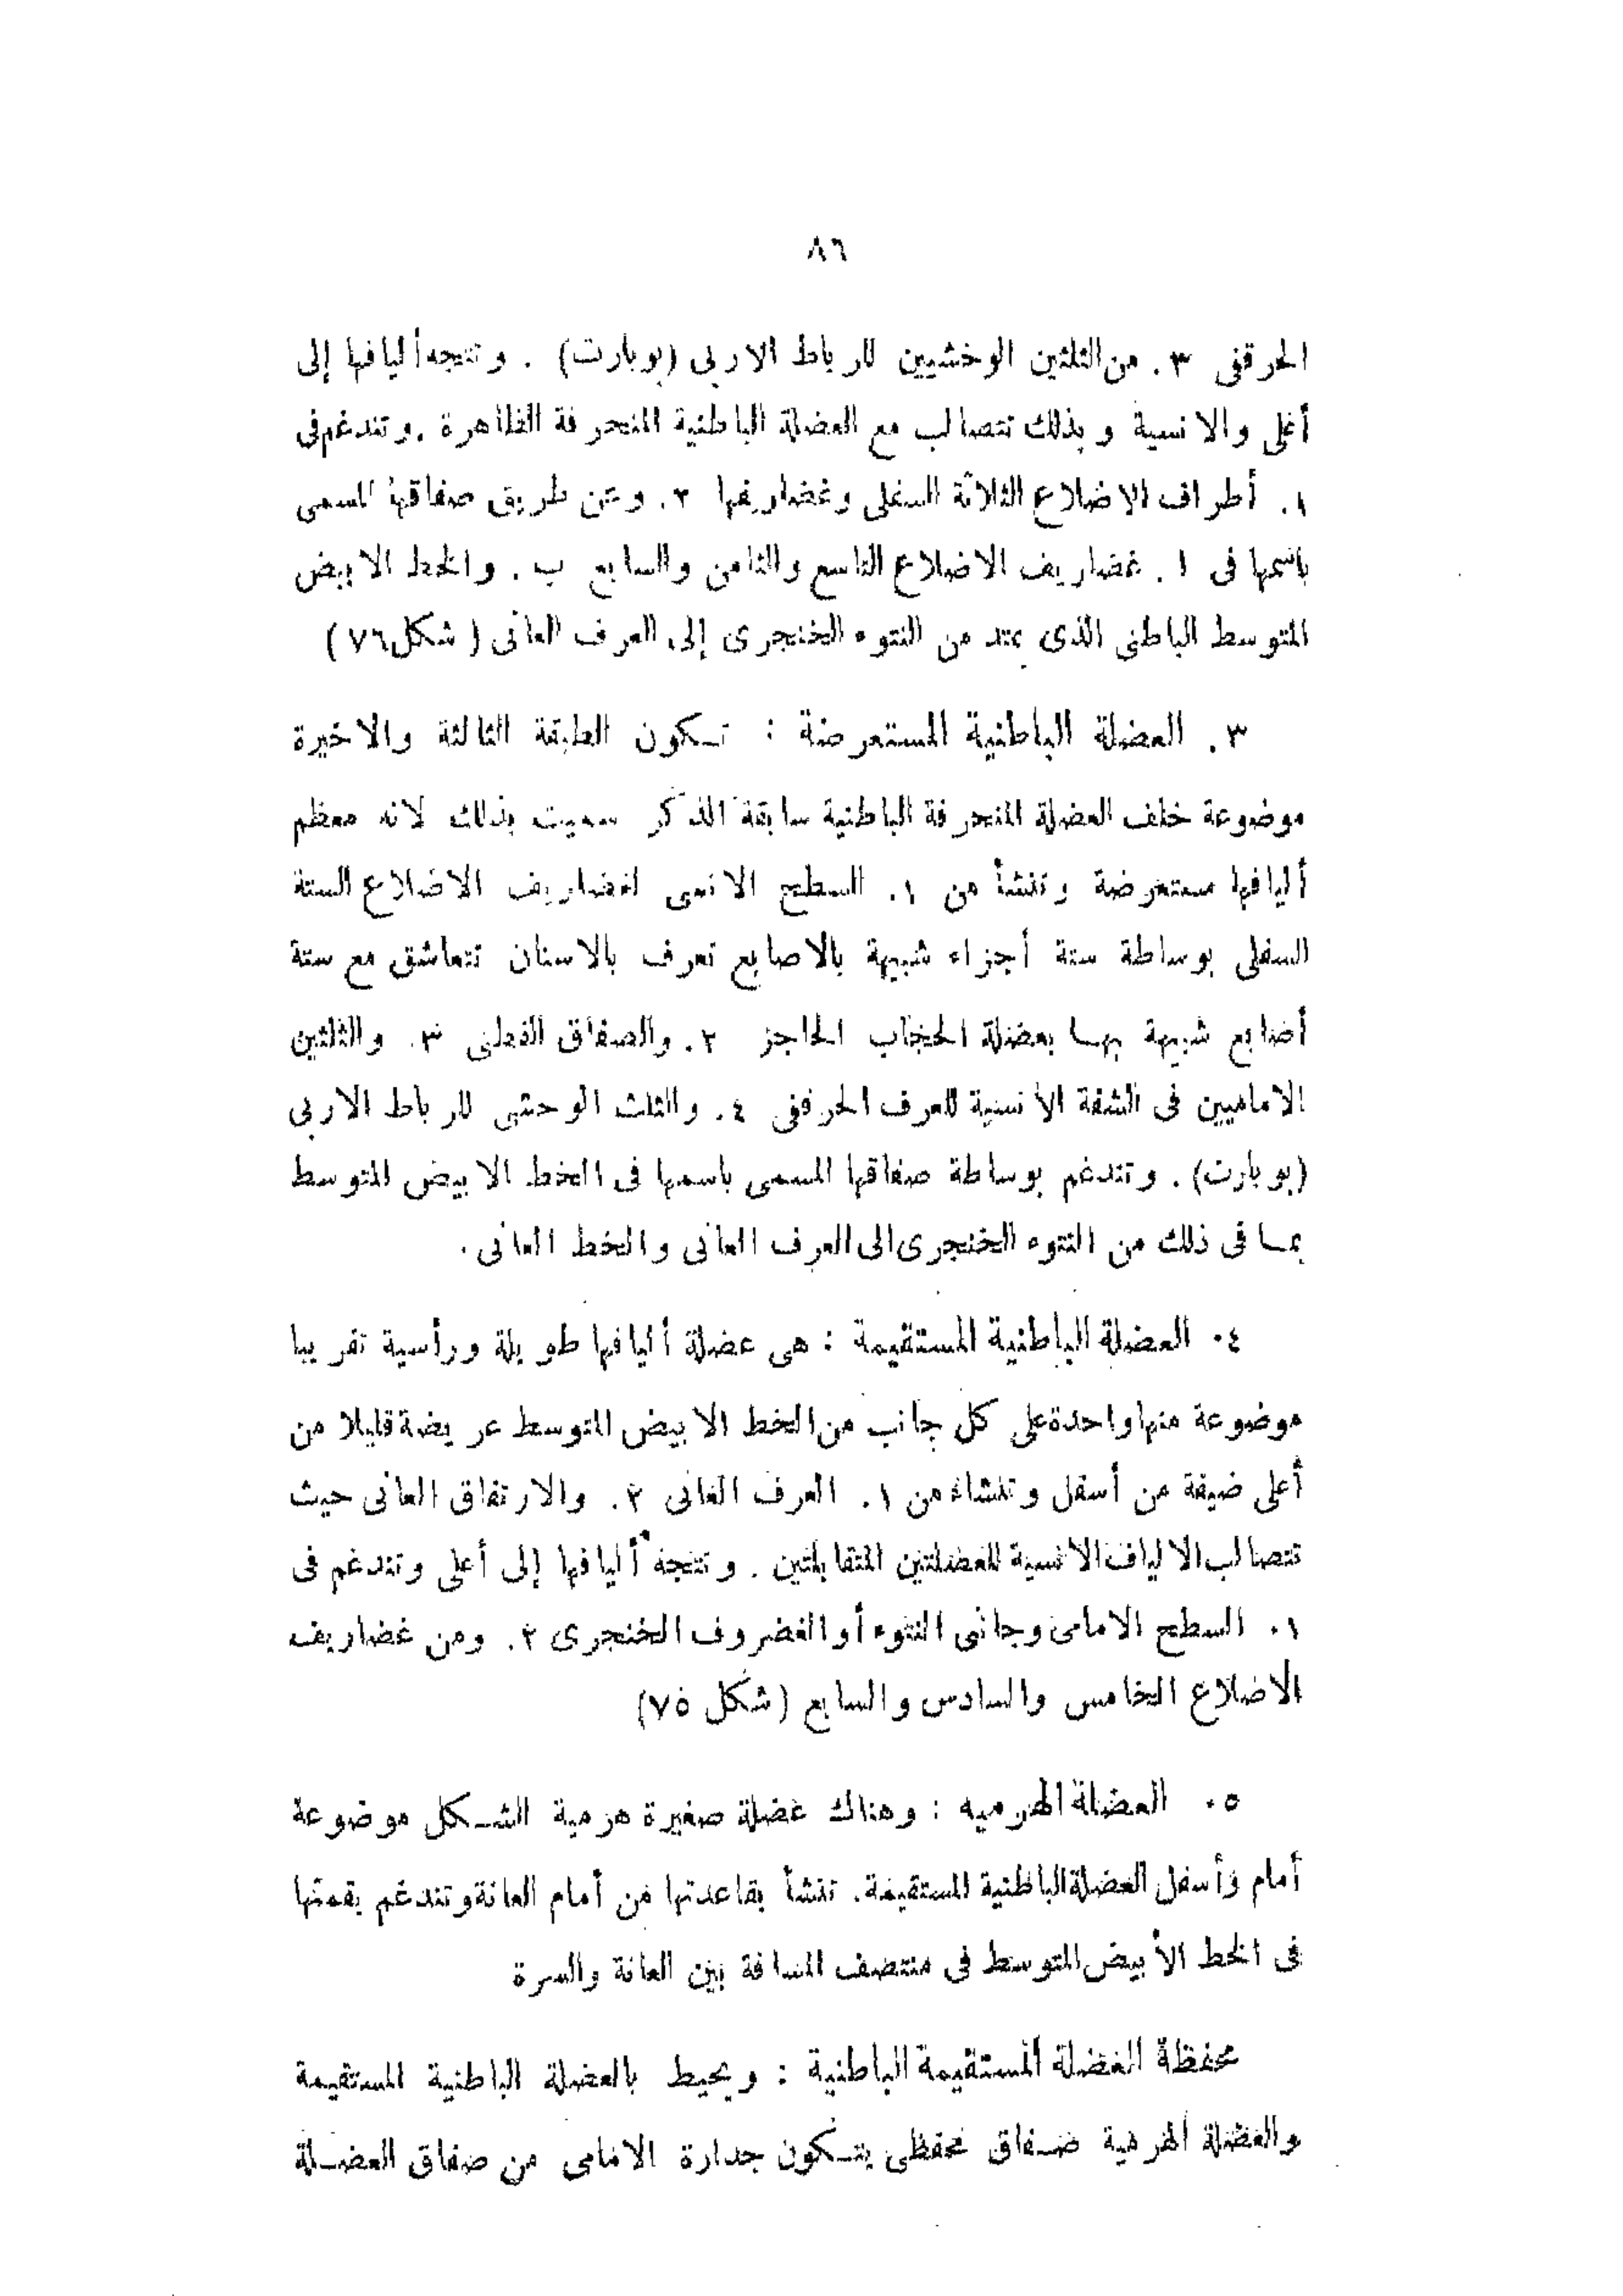 ٨٦
الحرقفى ٣. من الثلثين الوحشيين للرباط الاربى (بوبارت) . وتتجه أليافها إلى
أعلى والانسية وبذلك تتصالب مع العضلة الباطنية المنحرفة الظاهرة . وتندغم فى
١. أطراف الاضلاع الثلاثة السفلى وغضاريفها ٢. وعن طريق صفاقها المسمى
باسمها فى ا. غضاريف الاضلاع التاسع والثامن والسابع ب. والخط الابيض
المتوسط الباطنى الذى يمتد من النتوء الخنجرى إلى العرف العانى (شكل ٧٦)
٣. العضلة الباطنية المستعرضة : تكون الطبقة الثالثة والاخيرة
موضوعة خلف العضلة المنحرفة الباطنية سابقة الذكر سميت بذلك لانه معظم
أليافها مستعرضة وتنشأ من ١. السطح الانسى لغضاريف الاضلاع الستة
السفلى بوساطة ستة أجزاء شبيهة بالاصابع تعرف بالاسنان تتعاشق مع ستة
أصابع شبيهة بها بعضلة الحجاب الحاجز ٢. والصفاق القطنى ٣. والثلثين
الاماميين فى الشفة الانسية للعرف الحرقفى ٤. والثلث الوحشى للرباط الاربى
(بوبارت). وتندغم بوساطة صفاقها المسمى باسمها فى الخط الابيض المتوسط
بما فى ذلك من النتوء الخنجرى الى العرف العانى والخط العانى.
٤. العضلة الباطنية المستقيمة : هى عضلة أليافها طويلة ورأسية تقريبا
موضوعة منها واحدة على كل جانب من الخط الابيض المتوسط عريضة قليلا من
أعلى ضيقة من أسفل وتنشاء من ١. العرف العانى ٢. والارتفاق العانى حيث
تتصالب الالياف الانسية للعضلتين المتقابلتين . وتتجه أليافها إلى أعلى وتندغم فى
١. السطح الامامى وجانبى النتوء أو الغضروف الخنجرى ٢. ومن غضاريف
الاضلاع الخامس والسادس والسابع (شكل ٧٥)
٥. العضلة الهرميه : وهناك عضلة صغيرة هرمية الشكل موضوعة
أمام وأسفل العضلة الباطنية المستقيمة. تنشأ بقاعدتها من أمام العانة وتندغم بقمتها
فى الخط الأبيض المتوسط فى منتصف المسافة بين العانة والسرة
محفظة العضلة المستقيمة الباطنية : ويحيط بالعضلة الباطنية المستقيمة
والعضلة الهرمية صفاق محفظى يتكون جدارة الامامى من صفاق العضلة